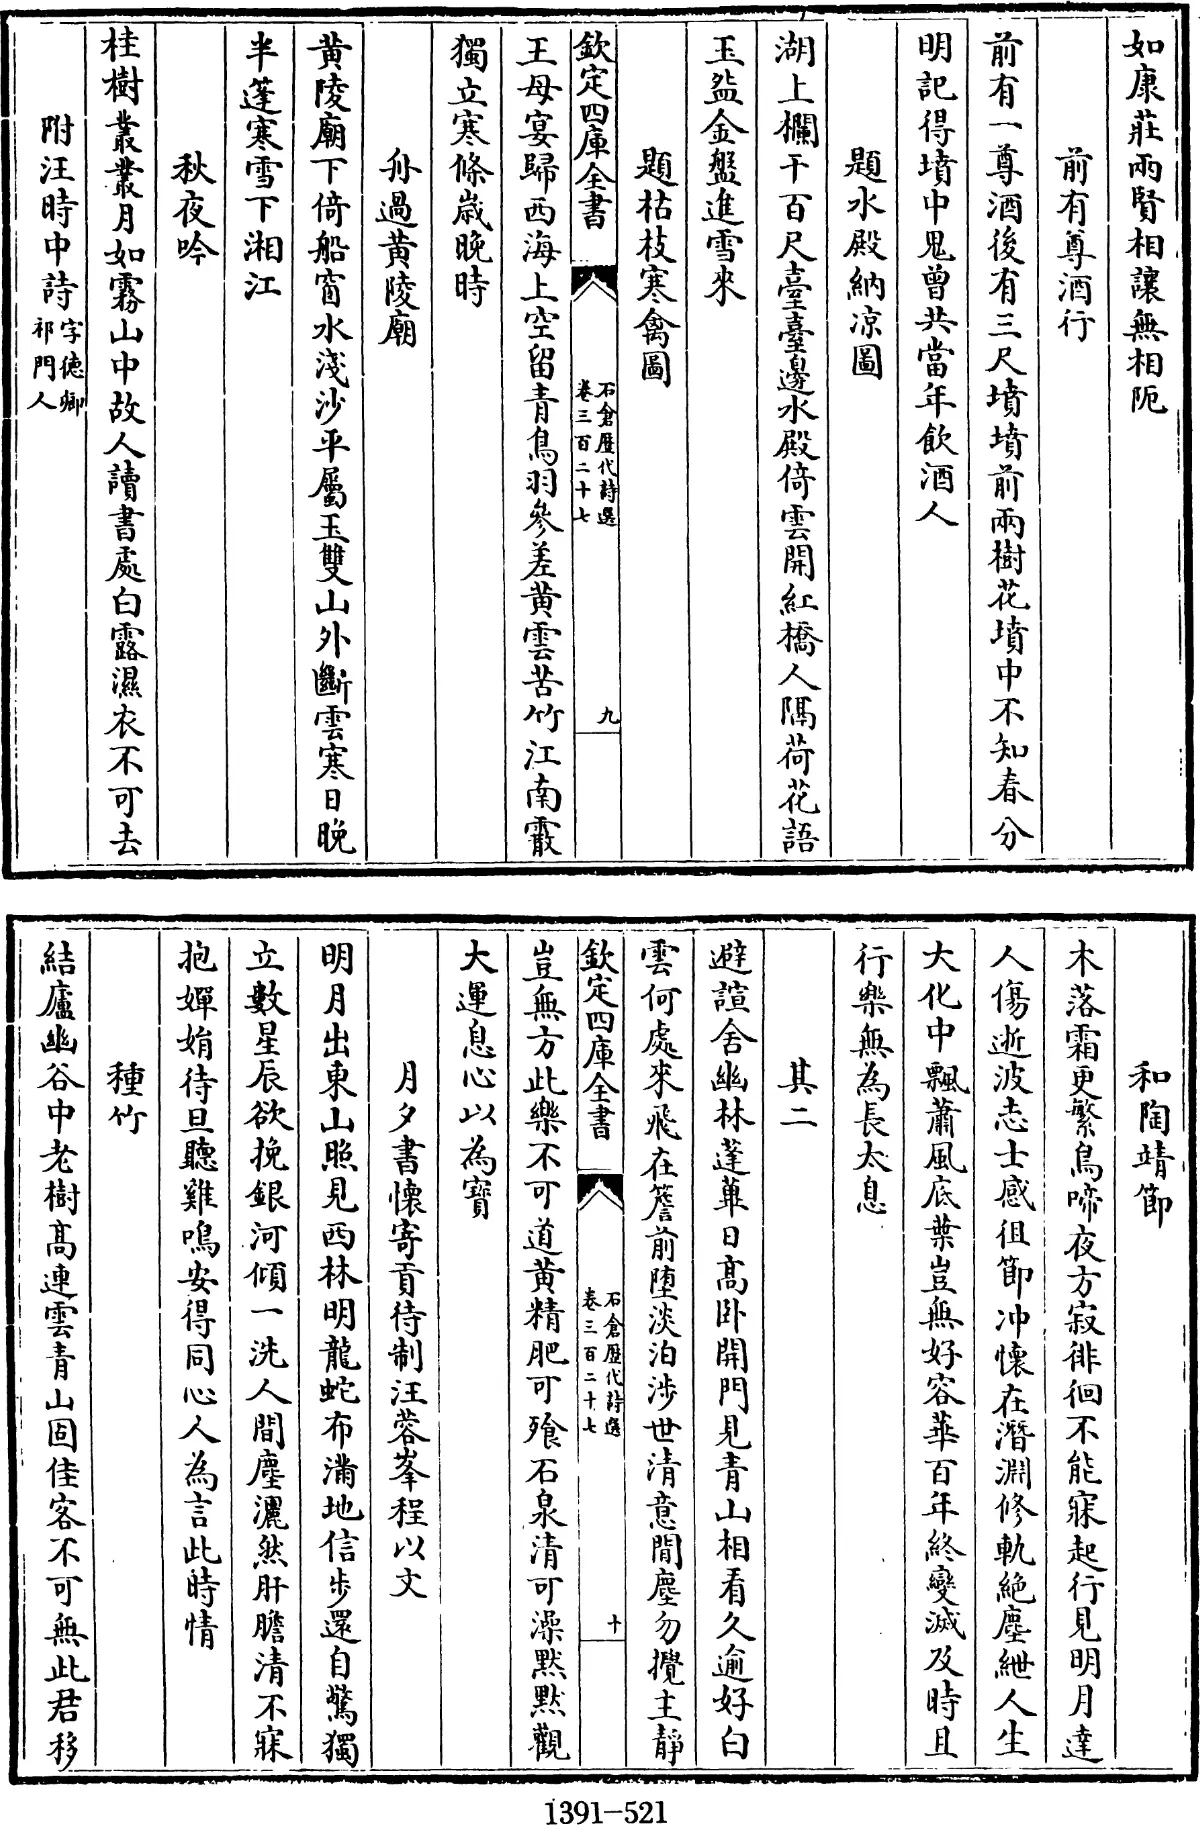 如康莊兩賢相讓無相阨
前有尊酒行
前有一尊酒後有三尺墳墳前兩樹花墳中不知春分
明記得墳中鬼曾共當年飲酒人
題水殿納凉圖
湖上欄干百尺臺臺邊水殿倚雲開紅橋人隔荷花語
玉盌金盤進雪來
題枯枝寒禽圖
欽定四庫全書
石倉歷代詩選
卷三百二十七
九
王母宴歸西海上空留青鳥羽參差黄雲苦竹江南霰
獨立寒條歲晚時
舟過黄陵廟
黄陵廟下倚船窗水淺沙平屬玉雙山外斷雲寒日晚
半蓬寒雪下湘江
秋夜吟
桂樹叢叢月如霧山中故人讀書處白露濕衣不可去
附汪時中詩字德卿
祁門人
和陶靖節
木落霜更繁鳥啼夜方寂徘徊不能寐起行見明月達
人傷逝波志士感徂節冲懷在潛淵修軌絶塵紲人生
大化中飄蕭風底葉豈無好容華百年終變滅及時且
行樂無為長太息
其二
避諠舍幽林蓬蓽日高卧開門見青山相看久逾好白
雲何處來飛在簷前墮淡泊涉世清意閒塵勿攪主靜
欽定四庫全書
石倉歷代詩選
卷三百二十七
十
豈無方此樂不可道黄精肥可飱石泉清可澡默默觀
大運息心以為寶
月夕書懷寄貢待制汪蓉峯程以文
明月出東山照見西林明龍蛇布滿地信步還自驚獨
立數星辰欲挽銀河傾一洗人間塵灑然肝膽清不寐
抱嬋娟待旦聽雞鳴安得同心人為言此時情
種竹
結廬幽谷中老樹高連雲青山固佳客不可無此君移
1391-521